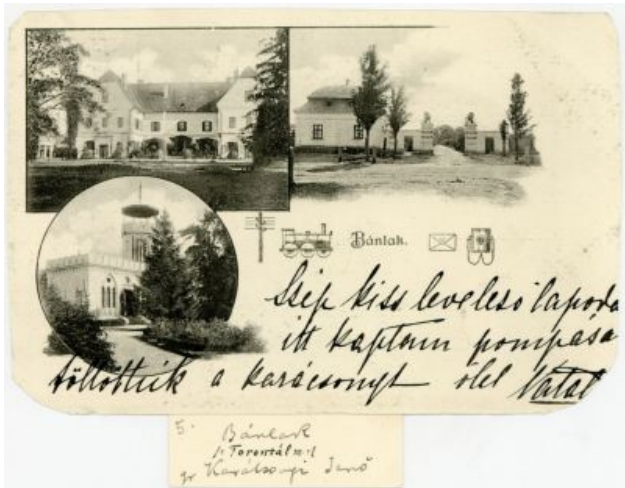 Bánlak.
Szép kiss levelező lapoda
itt kaptam pompása
töllöttük a karácsonyt ölel Natal
5. Bánlak
/: Torontál m :/
gr Karátsonyi Jenő